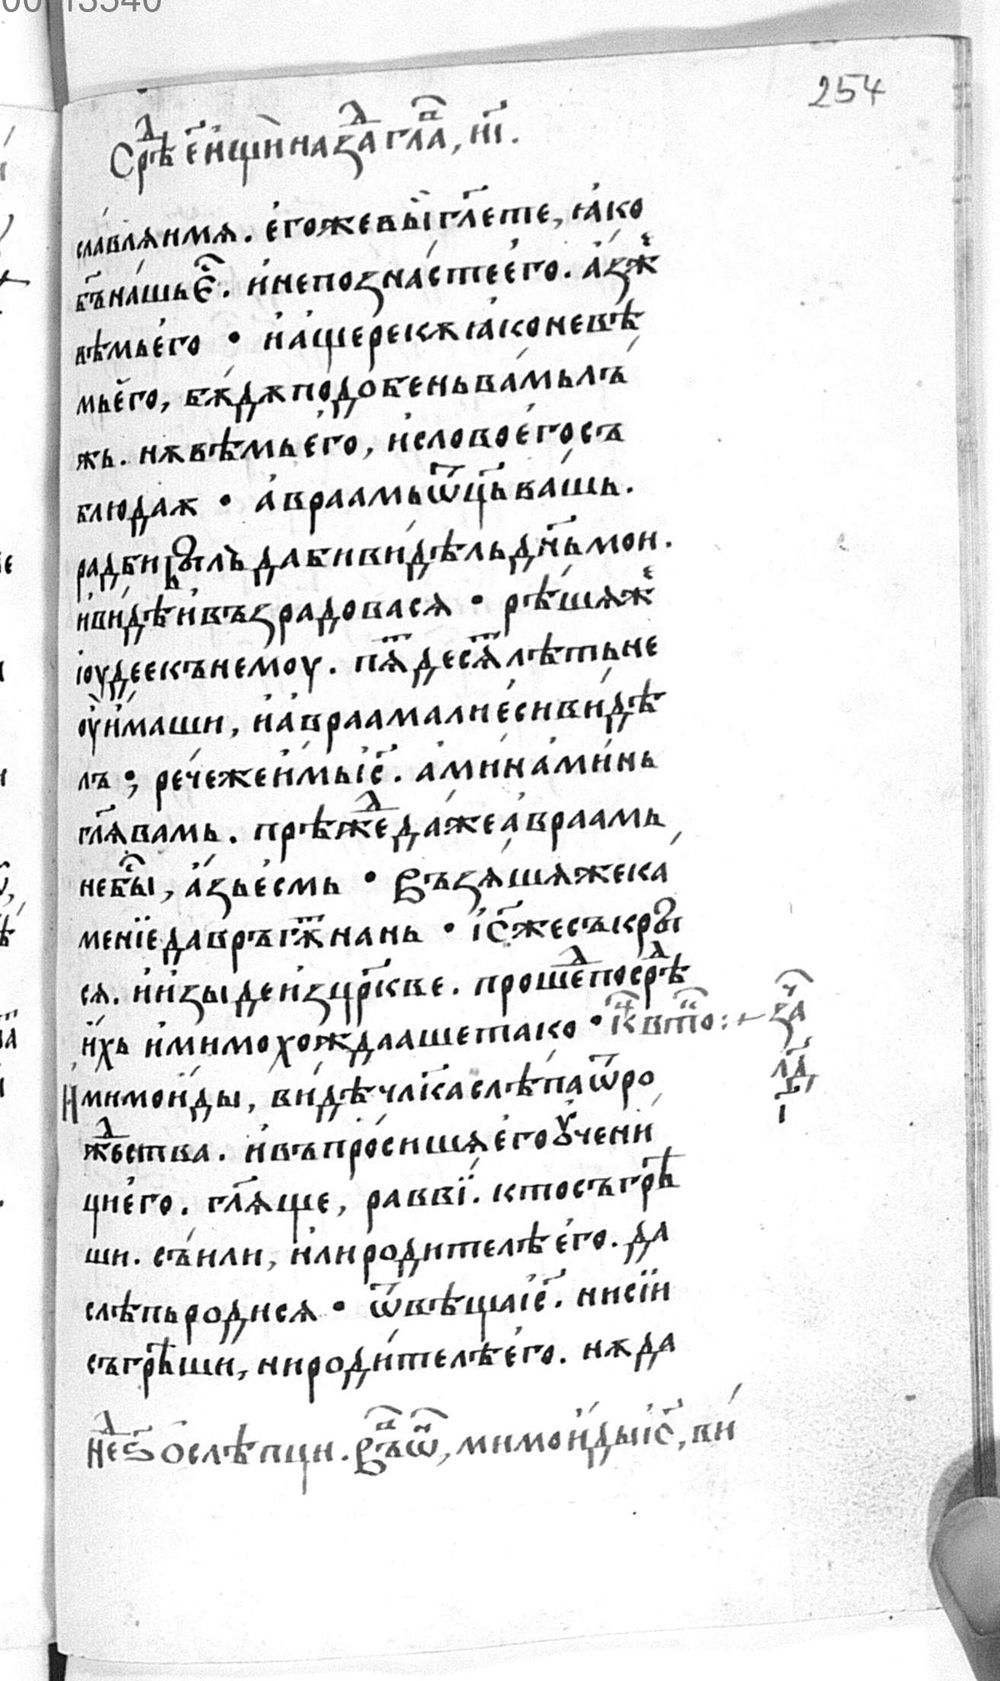 0013540
254
Срѣⷣ е҃ и҆щѝ на заⷱ҇ глⷡ҇а, н҃і.
сла́влѧи мѧ. е҆гоже вы̀ гл҃ете, ꙗ҆ко
б҃ъ на́шь є҆ⷭ҇. и҆ не позна́сте е҆го. а҆зже
вѣмь е҆го • и҆ а҆ще рекѫ ꙗ҆ко не вѣ
мь е҆го, бѫ́дѫ подо́бень ва́мь лъ́
жь. нѫ вѣмь е҆го, и҆ слово е҆го съ
блюдаѫ • а҆враамь ѿц҃ь ва́шь.
рад би былъ да би ви́дѣль дн҃ь мои.
и҆ ви́дѣ и҆ възрадовасѧ • рѣ́шѧ же
іоудее къ немоу. пѧⷮдесѧⷮ лѣть не
оу҆ и҆маши, и҆ а҆враама ли е҆си ви́дѣ
лъ ; рече́ же и҆мь і҆с҃. а҆ми́н а҆ми́нь
гл҃ѧ вамь. прѣжеⷣ да́же а҆враамь
не быⷭ҇, а҆́зь е҆смь • Възѧ́шѧ же ка́
менїе да връгѫⷮ на нь • і҆с҃ же съкры
сѧ. и҆ и҆зыде и҆з цр҃кве. прошеⷣ посрѣⷣ
и҆́хь и҆ мимохождааше тако • к҃ вⸯ тоⷨ : – заⷱ҇
И мимои́ды, ви́дѣ чл҃ка слѣпа ѿ ро лд҃
жⷣьства. и҆ въпроси́шѧ е҆го оу҆чени і҃
ци е҆го. гл҃ѧще, раввї. кто съгрѣ
ши. съ и҆ли, и҆ли родителѣ е҆го. да
слѣпь родисѧ • ѿвѣща і҆с҃. ни сїи
съгрѣши, ни роди́телѣ е҆го. нѫ да
неⷣ ѕ҃ о слѣпци. Въ ѡⷩ҇, мимои́ды і҆с҃, ви́